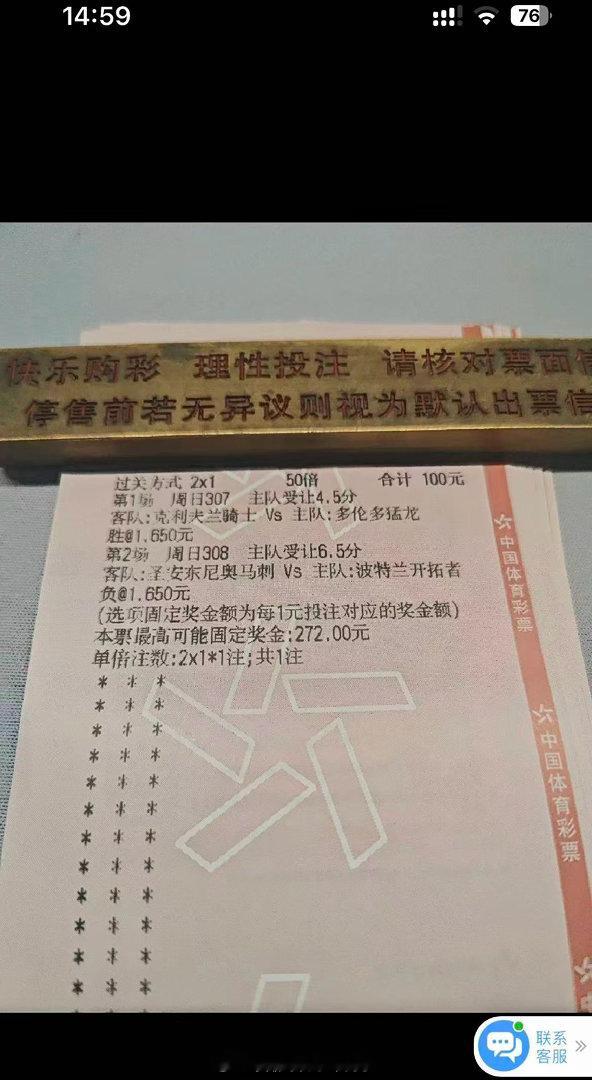 14:59
76
快乐购彩 理性投注 请核对票面信
停售前若无异议则视为默认出票信
过关方式 2x1 50倍 合计 100元
第1场 周日307 主队受让4.5分
客队:克利夫兰骑士 Vs 主队:多伦多猛龙
胜@1.650元
第2场 周日308 主队受让6.5分
客队:圣安东尼奥马刺 Vs 主队:波特兰开拓者
负@1.650元
(选项固定奖金额为每1元投注对应的奖金额)
本票最高可能固定奖金:272.00元
单倍注数:2x1*1注;共1注
* * *
* * *
* * *
* * *
* * *
* * *
* * *
* * *
* * *
* * *
* * *
* * *
* * *
中国体育彩票
中国体育彩票
联系
客服